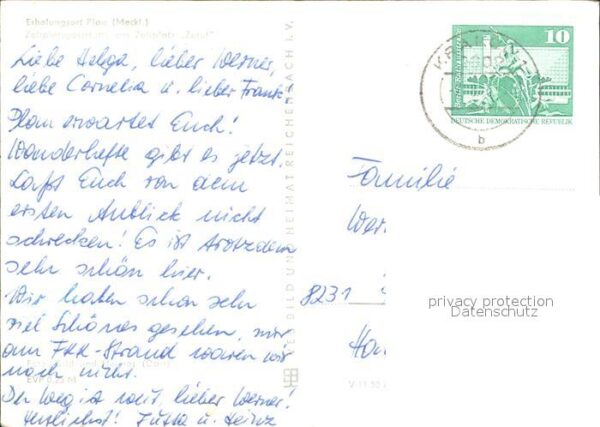 Erholungsort Plau (Meckl.)
Liebe Helga, lieber Werner,
liebe Cornelia u. lieber Frank
Plau erwartet Euch!
Wanderhefte gibt es jetzt.
Laßt Euch von dem
ersten Anblick nicht
schrecken! Es ist trotzdem
sehr schön hier.
Wir haben schon sehr
viel Schönes gesehen, nur
am FKK-Strand waren wir
noch nicht.
EVP 0,25 M
Der Weg ist weit, lieber Werner!
Herzlichst! Jutta u. Heinz
BILD UND HEIMAT REICHENBACH I. V.
10
DEUTSCHE DEMOKRATISCHE REPUBLIK
b
Familie
Wer
8231
privacy protection
Datenschutz